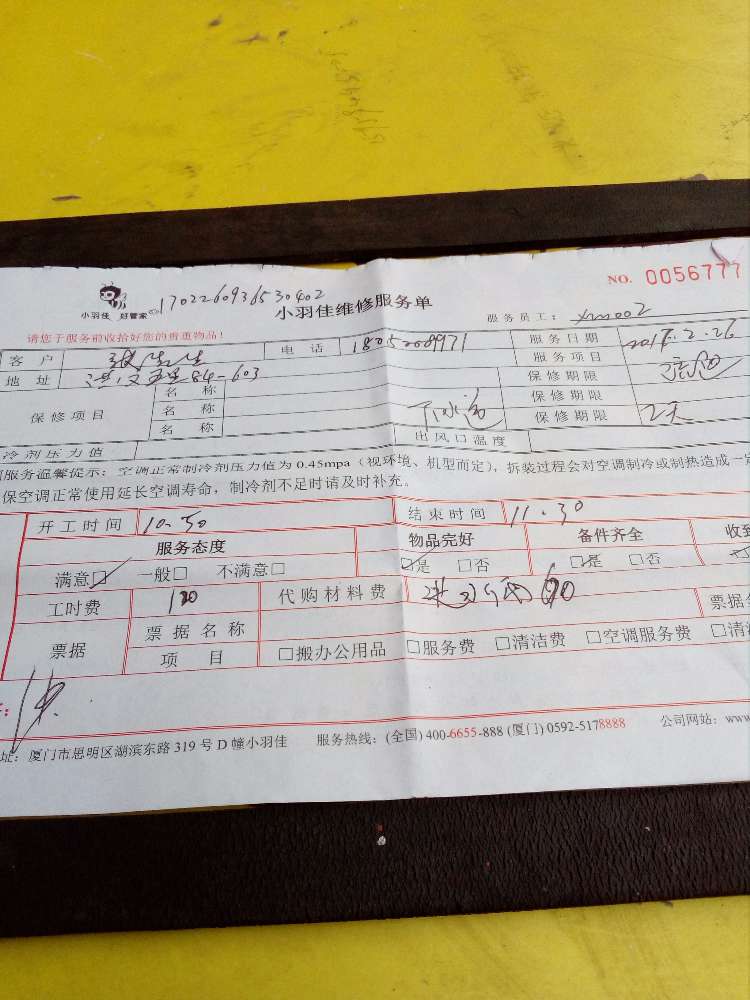 NO. 0056777
小羽佳 好管家 170226093630402
小羽佳维修服务单
服务员工: xm002
请您于服务前收拾好您的贵重物品!
客户 张先生 电话 服务日期 2017.2.26
地址 洪文五里84-603 服务项目
保修项目 名称 保修期限
名称 下水道 保修期限
名称 保修期限 2天
冷剂压力值 出风口温度
服务温馨提示: 空调正常制冷剂压力值为 0.45mpa (视环境、机型而定), 拆装过程会对空调制冷或制热造成一定
保空调正常使用延长空调寿命, 制冷剂不足时请及时补充。
开工时间 10.50 结束时间 11.30
服务态度 物品完好 备件齐全 收到
满意☑ 一般□ 不满意□ ☑是 □否 ☑是 □否
工时费 代购材料费
票据 票据名称 票据
项目 □搬办公用品 □服务费 □清洁费 □空调服务费 □清
址: 厦门市思明区湖滨东路 319 号 D 幢小羽佳 服务热线: (全国) 400-6655-888 (厦门) 0592-5178888 公司网站: www